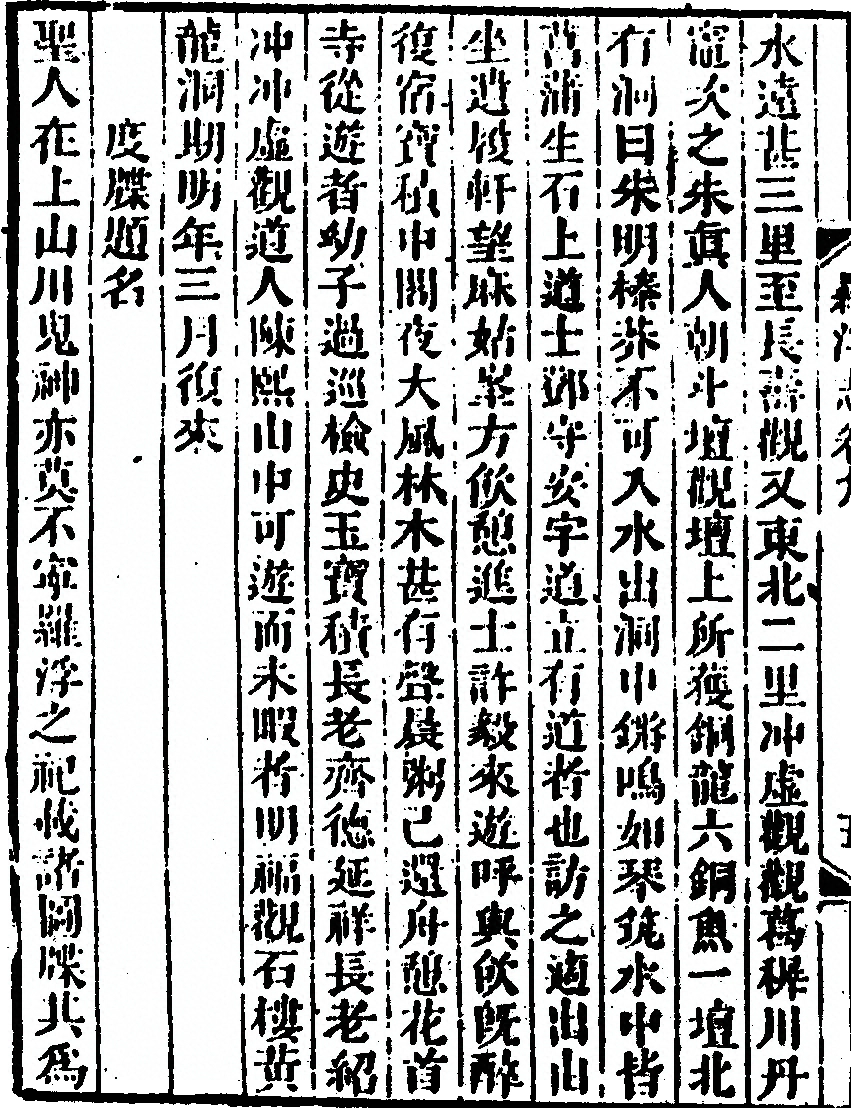 水遠甚三里至長壽觀又東北二里冲虛觀觀葛稚川丹
竈次之朱眞人朝斗壇觀壇上所獲銅龍六銅魚一壇北
有洞曰朱明榛莽不可入水出洞中鏘鳴如琴筑水中皆
菖蒲生石上道士鄧守安字道立有道者也訪之適出山
坐遺屐軒望麻姑峯方飲憩進士許毅來遊呼與飲旣醉
復宿寶積中閣夜大風林木甚有聲晨粥已還舟憩花首
寺從遊者幼子過巡檢史玉寶積長老齊德延祥長老紹
冲冲虛觀道人陳熙山中可遊而未暇者明福觀石樓黄
龍洞期明年三月復來
度牒題名
聖人在上山川鬼神亦莫不寧羅浮之祀載諸圖牒其爲
羅浮志卷九